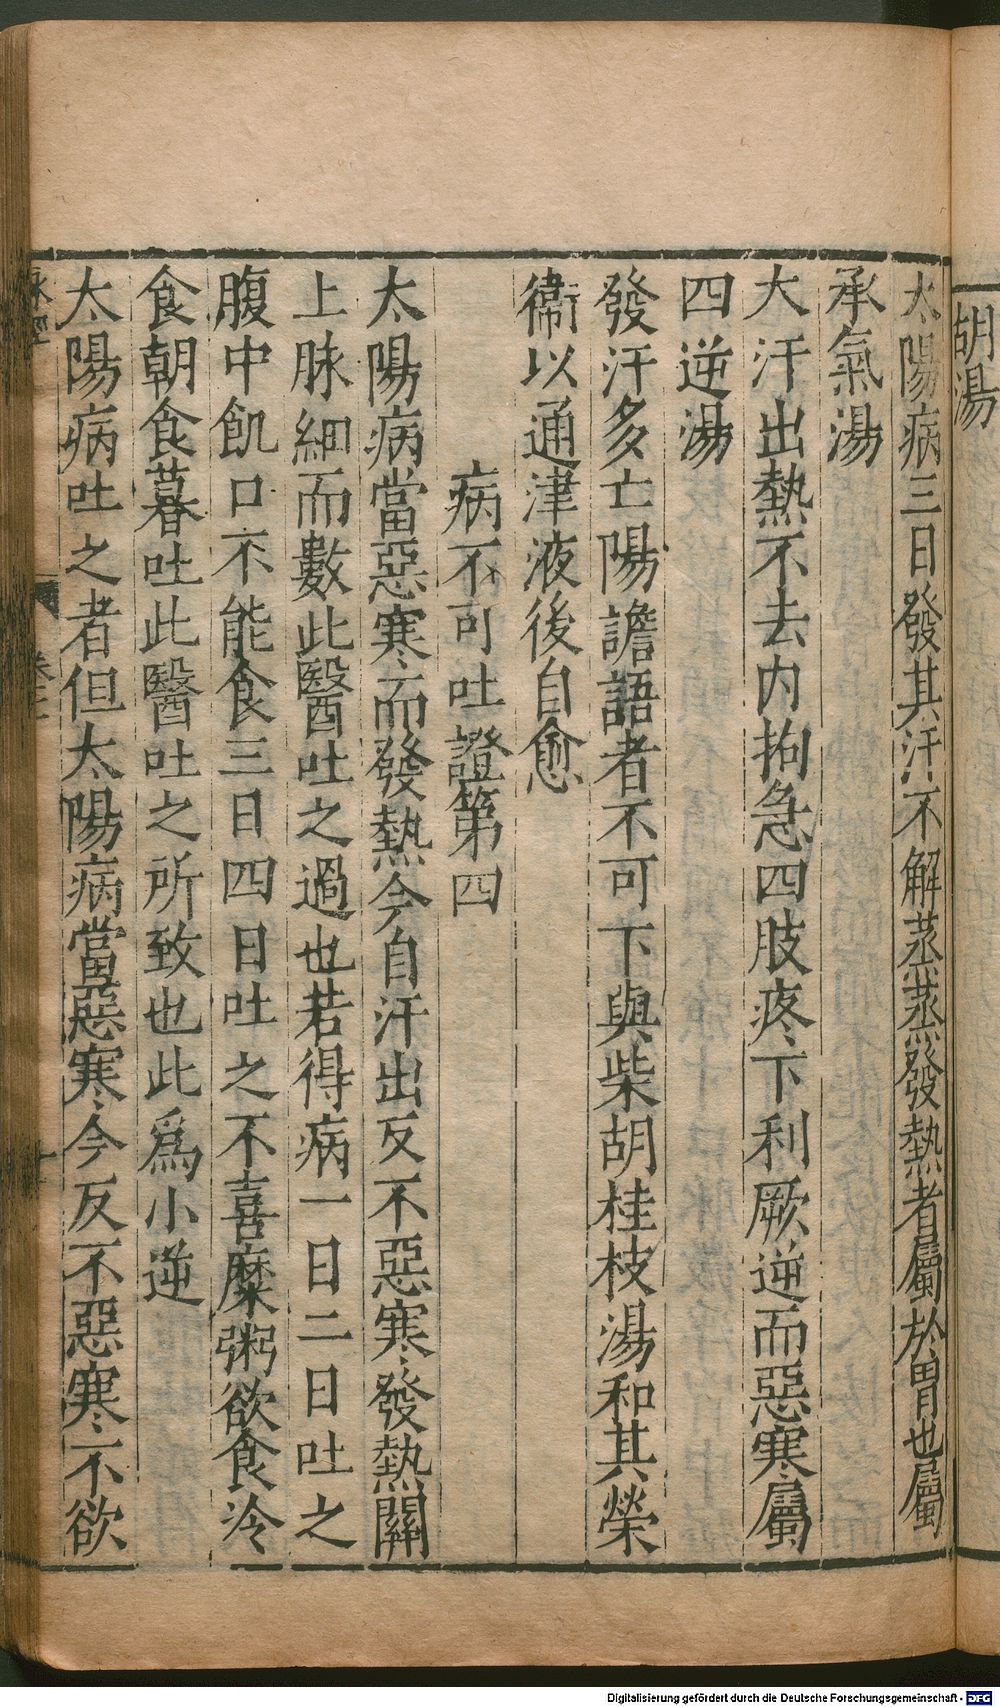 胡湯
太陽病三日發其汗不解蒸蒸發熱者屬於胃也屬
承氣湯
大汗出熱不去内拘急四肢疼下利厥逆而惡寒屬
四逆湯
發汗多亡陽譫語者不可下與柴胡桂枝湯和其榮
衛以通津液後自愈
病不可吐證第四
太陽病當惡寒而發熱今自汗出反不惡寒發熱關
上脉細而數此醫吐之過也若得病一日二日吐之
腹中飢口不能食三日四日吐之不喜糜粥欲食冷
食朝食暮吐此醫吐之所致也此爲小逆
太陽病吐之者但太陽病當惡寒今反不惡寒不欲
脉經
卷三
Digitalisierung gefördert durch die Deutsche Forschungsgemeinschaft - DFG